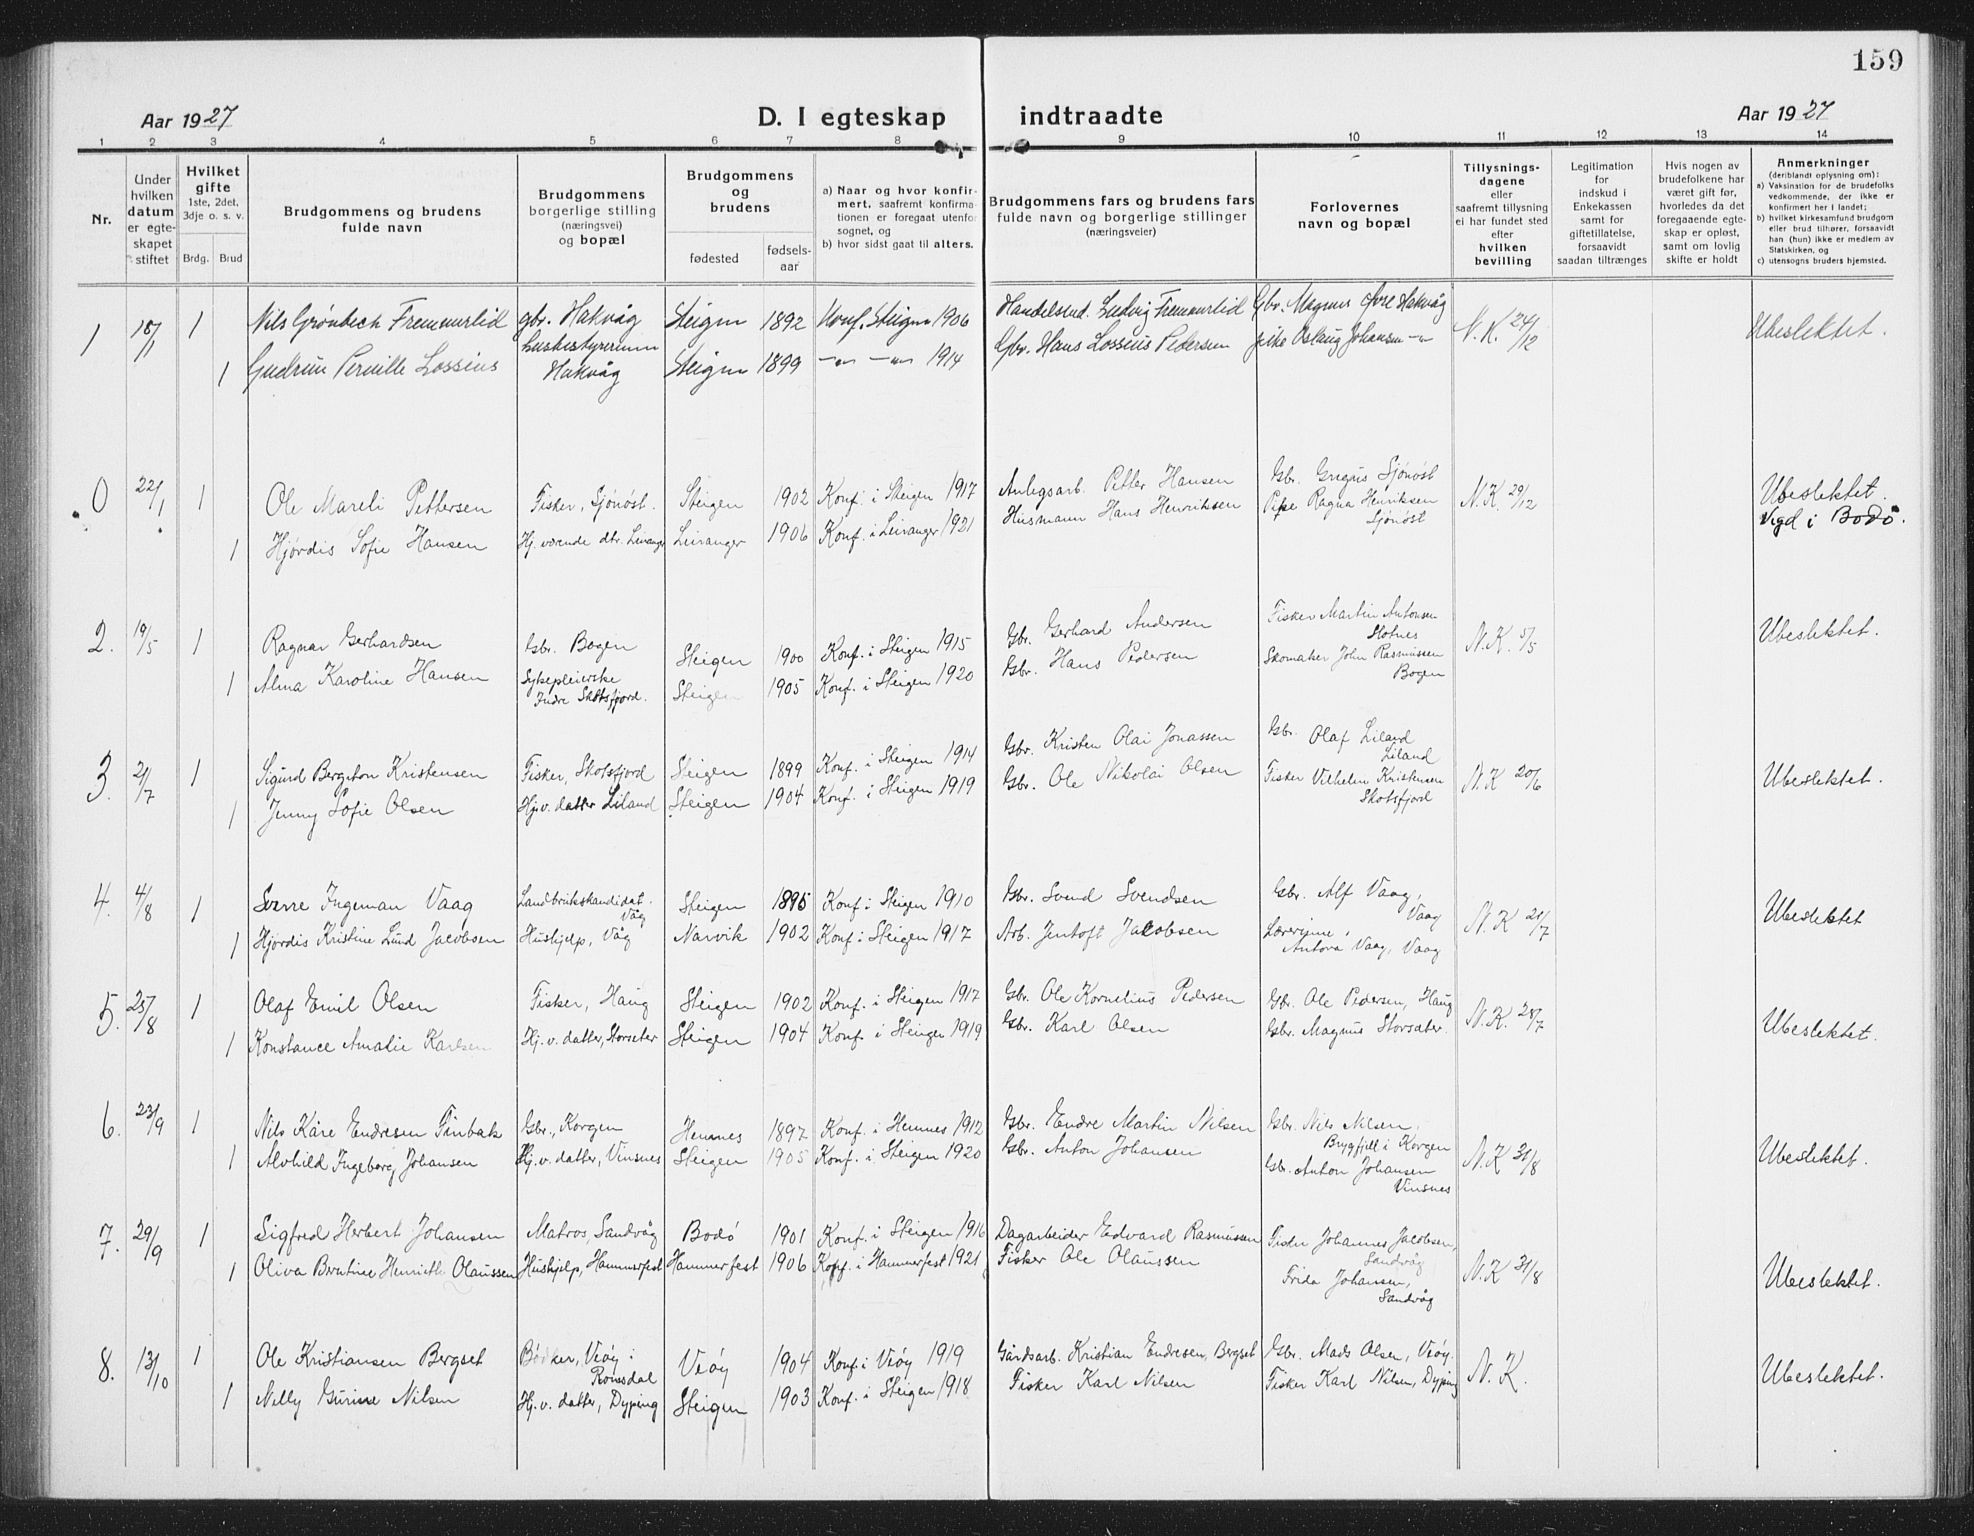 159
Aar 1927
D. I egteskap indtraadte
Aar 1927
1 2 3 4 5 6 7 8 9 10 11 12 13 14
Nr.
Under hvilken datum er egteskapet stiftet
Hvilket gifte 1ste, 2det, 3dje o. s. v.
Brdg. Brud
Brudgommens og brudens fulde navn
Brudgommens borgerlige stilling (næringsvei) og bopæl
Brudgommens og brudens
fødested
fødsels-aar
a) Naar og hvor konfirmert, saafremt konfirmationen er foregaat utenfor sognet, og
b) hvor sidst gaat til alters.
Brudgommens fars og brudens fars fulde navn og borgerlige stillinger (næringsveier)
Forlovernes navn og bopæl
Tillysningsdagene eller saafremt tillysning ei har fundet sted efter hvilken bevilling
Legitimation for indskud i Enkekassen samt for giftetillatelse, forsaavidt saadan tiltrænges
Hvis nogen av brudefolkene har været gift før, hvorledes da det foregaaende egteskap er opløst, samt om lovlig skifte er holdt
Anmerkninger (deriblandt oplysning om):
a) Vaksination for de brudefolks vedkommende, der ikke er konfirmert her i landet;
b) hvilket kirkesamfund brudgom eller brud tilhører, forsaavidt han (hun) ikke er medlem av Statskirken, og
c) utensogns bruders hjemsted.
1 1 Nils Grönbech Fremmerlid gbr. Hakvåg Steigen 1892 Konf. Steigen 1906 Ludvig Fremmerlid Gbr. Magnus Øvre Hakvåg N. K. 24/12 Ubeslektet.
1 Gudrun Pernille Lossius Hakvåg Steigen 1899 1914 Gbr. Hans Lossius Pedersen Aslaug Johansen
0 22/1 1 Ole Mareli Pettersen Fisker, Sjönöst. Steigen 1902 Konf. i Steigen 1917 Anlegsarb. Petter Hansen Gbr. Gregus Sjönöst N. K. 29/12 Ubeslektet.
1 Hjördis Sofie Hansen Hj. værende dtr. Leiranger Leiranger 1906 Konf. i Leiranger 1921 Husmann Hans Henriksen Pike Ragna Henriksen Sjönöst Vigd i Bodö.
2. 19/5 1 Ragnar Gerhardsen Gbr. Bogen Steigen 1900 Konf. i Steigen 1915 Gbr. Gerhard Andersen Fisker Martin Antonsen N. K. 5/5 Ubeslektet.
1 Alma Karoline Hansen Sykepleierske Indre Skotsfjord. Steigen 1905 Konf. i Steigen 1920 Gbr. Hans Pedersen Skomaker John Rasmussen Bogen
3. 2/7 1 Sigurd Bergeton Kristensen Fisker, Skotsfjord Steigen 1899 Konf. i Steigen 1914 Gbr. Kristen Olai Jonassen Gbr. Olaf Liland Liland N. K 20/6 Ubeslektet.
1 Jenny Sofie Olsen Hj.v. datter Liland Steigen 1904 Konf. i Steigen 1919 Gbr. Ole Nikolai Olsen Fisker Vilhelm Kristensen Skotsfjord
4. 4/8 1 Sverre Ingeman Vaag Landbrukskandidat. Våg Steigen 1895 Konf i Steigen 1910 Gbr. Svend Svendsen Gbr. Alf Vaag, Vaag N. K 21/7 Ubeslektet
1 Hjördis Kristine Lund Jacobsen Hushjelp, Våg Narvik 1902 Konf. i Steigen 1917 Arb. Jentoft Jacobsen Lærerinne, Antora Vaag, Vaag
5. 25/8 1 Olaf Emil Olsen Fisker, Haug Steigen 1902 Konf. i Steigen 1917 Gbr. Ole Kornelius Pedersen Gbr. Ole Pedersen, Haug N. K. 28/7 Ubeslektet.
1 Konstance Amalie Karlsen Hj. v. datter, Storseter Steigen 1904 Konf. i Steigen 1919 Gbr. Karl Olsen Gbr. Magnus Storsæter.
6. 23/9 1 Nils Kåre Endresen Finbak Gbr., Korgen Hemnes 1897 Konf. i Hemnes 1912 Gbr. Endre Martin Nilsen Gbr. Nils Nilsen, Brygfjell i Korgen N. K 31/8 Ubeslektet.
1 Alvhild Ingeborg Johansen Hj. v. datter, Vinsnes Steigen 1905 Konf. i Steigen 1920 Gbr. Anton Johansen Gbr. Anton Johansen Vinsnes
7. 29/9 1 Sigfred Herbert Johansen Matros, Sandvåg Bodö 1901 Konf. i Steigen 1916 Dagarbeider Edvard Rasmussen Fisker Johannes Jacobsen, Sandvåg N. K 31/8 Ubeslektet.
1 Oliva Berntine Henriette Olaussen Hushjelp, Hammerfest Hammerfest 1906 Konf. i Hammerfest 1921 Fisker Ole Olaussen Frida Johansen, Sandvåg
8. 13/10 1 Ole Kristiansen Bergset Bödker, Veöy i Romsdal Veöy 1904 Konf. i Veöy 1919 Gårdsarb. Kristian Endresen, Bergset Gbr. Mads Olsen, Veöy. N. K. Ubeslektet.
1 Nelly Gurine Nilsen Hj. v. datter, Dyping Steigen 1903 Konf. i Steigen 1918 Fisker Karl Nilsen Fisker Karl Nilsen, Dyping